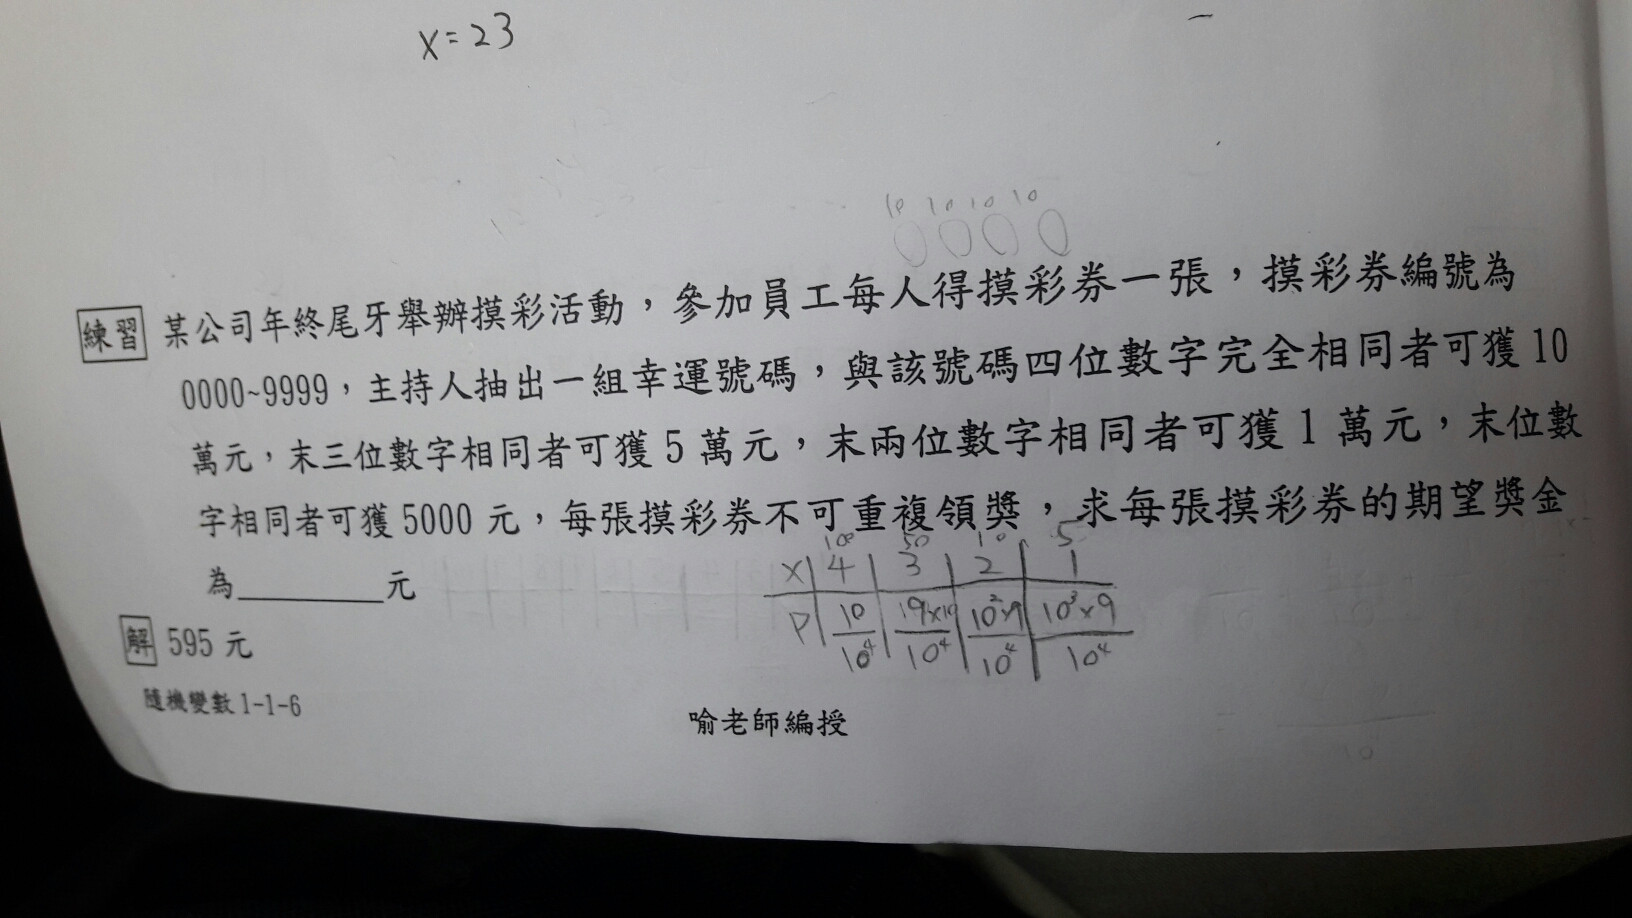 x=23
10 10 10 10
0 0 0 0
練習 某公司年終尾牙舉辦摸彩活動，參加員工每人得摸彩券一張，摸彩券編號為
0000~9999，主持人抽出一組幸運號碼，與該號碼四位數字完全相同者可獲 10
萬元，末三位數字相同者可獲 5 萬元，末兩位數字相同者可獲 1 萬元，末位數
字相同者可獲 5000 元，每張摸彩券不可重複領獎，求每張摸彩券的期望獎金
100 50 10 5
為________元 X 4 3 2 1
P 10/10⁴ 19×10/10⁴ 10²×9/10⁴ 10³×9/10⁴
解 595 元
隨機變數 1-1-6
喻老師編授